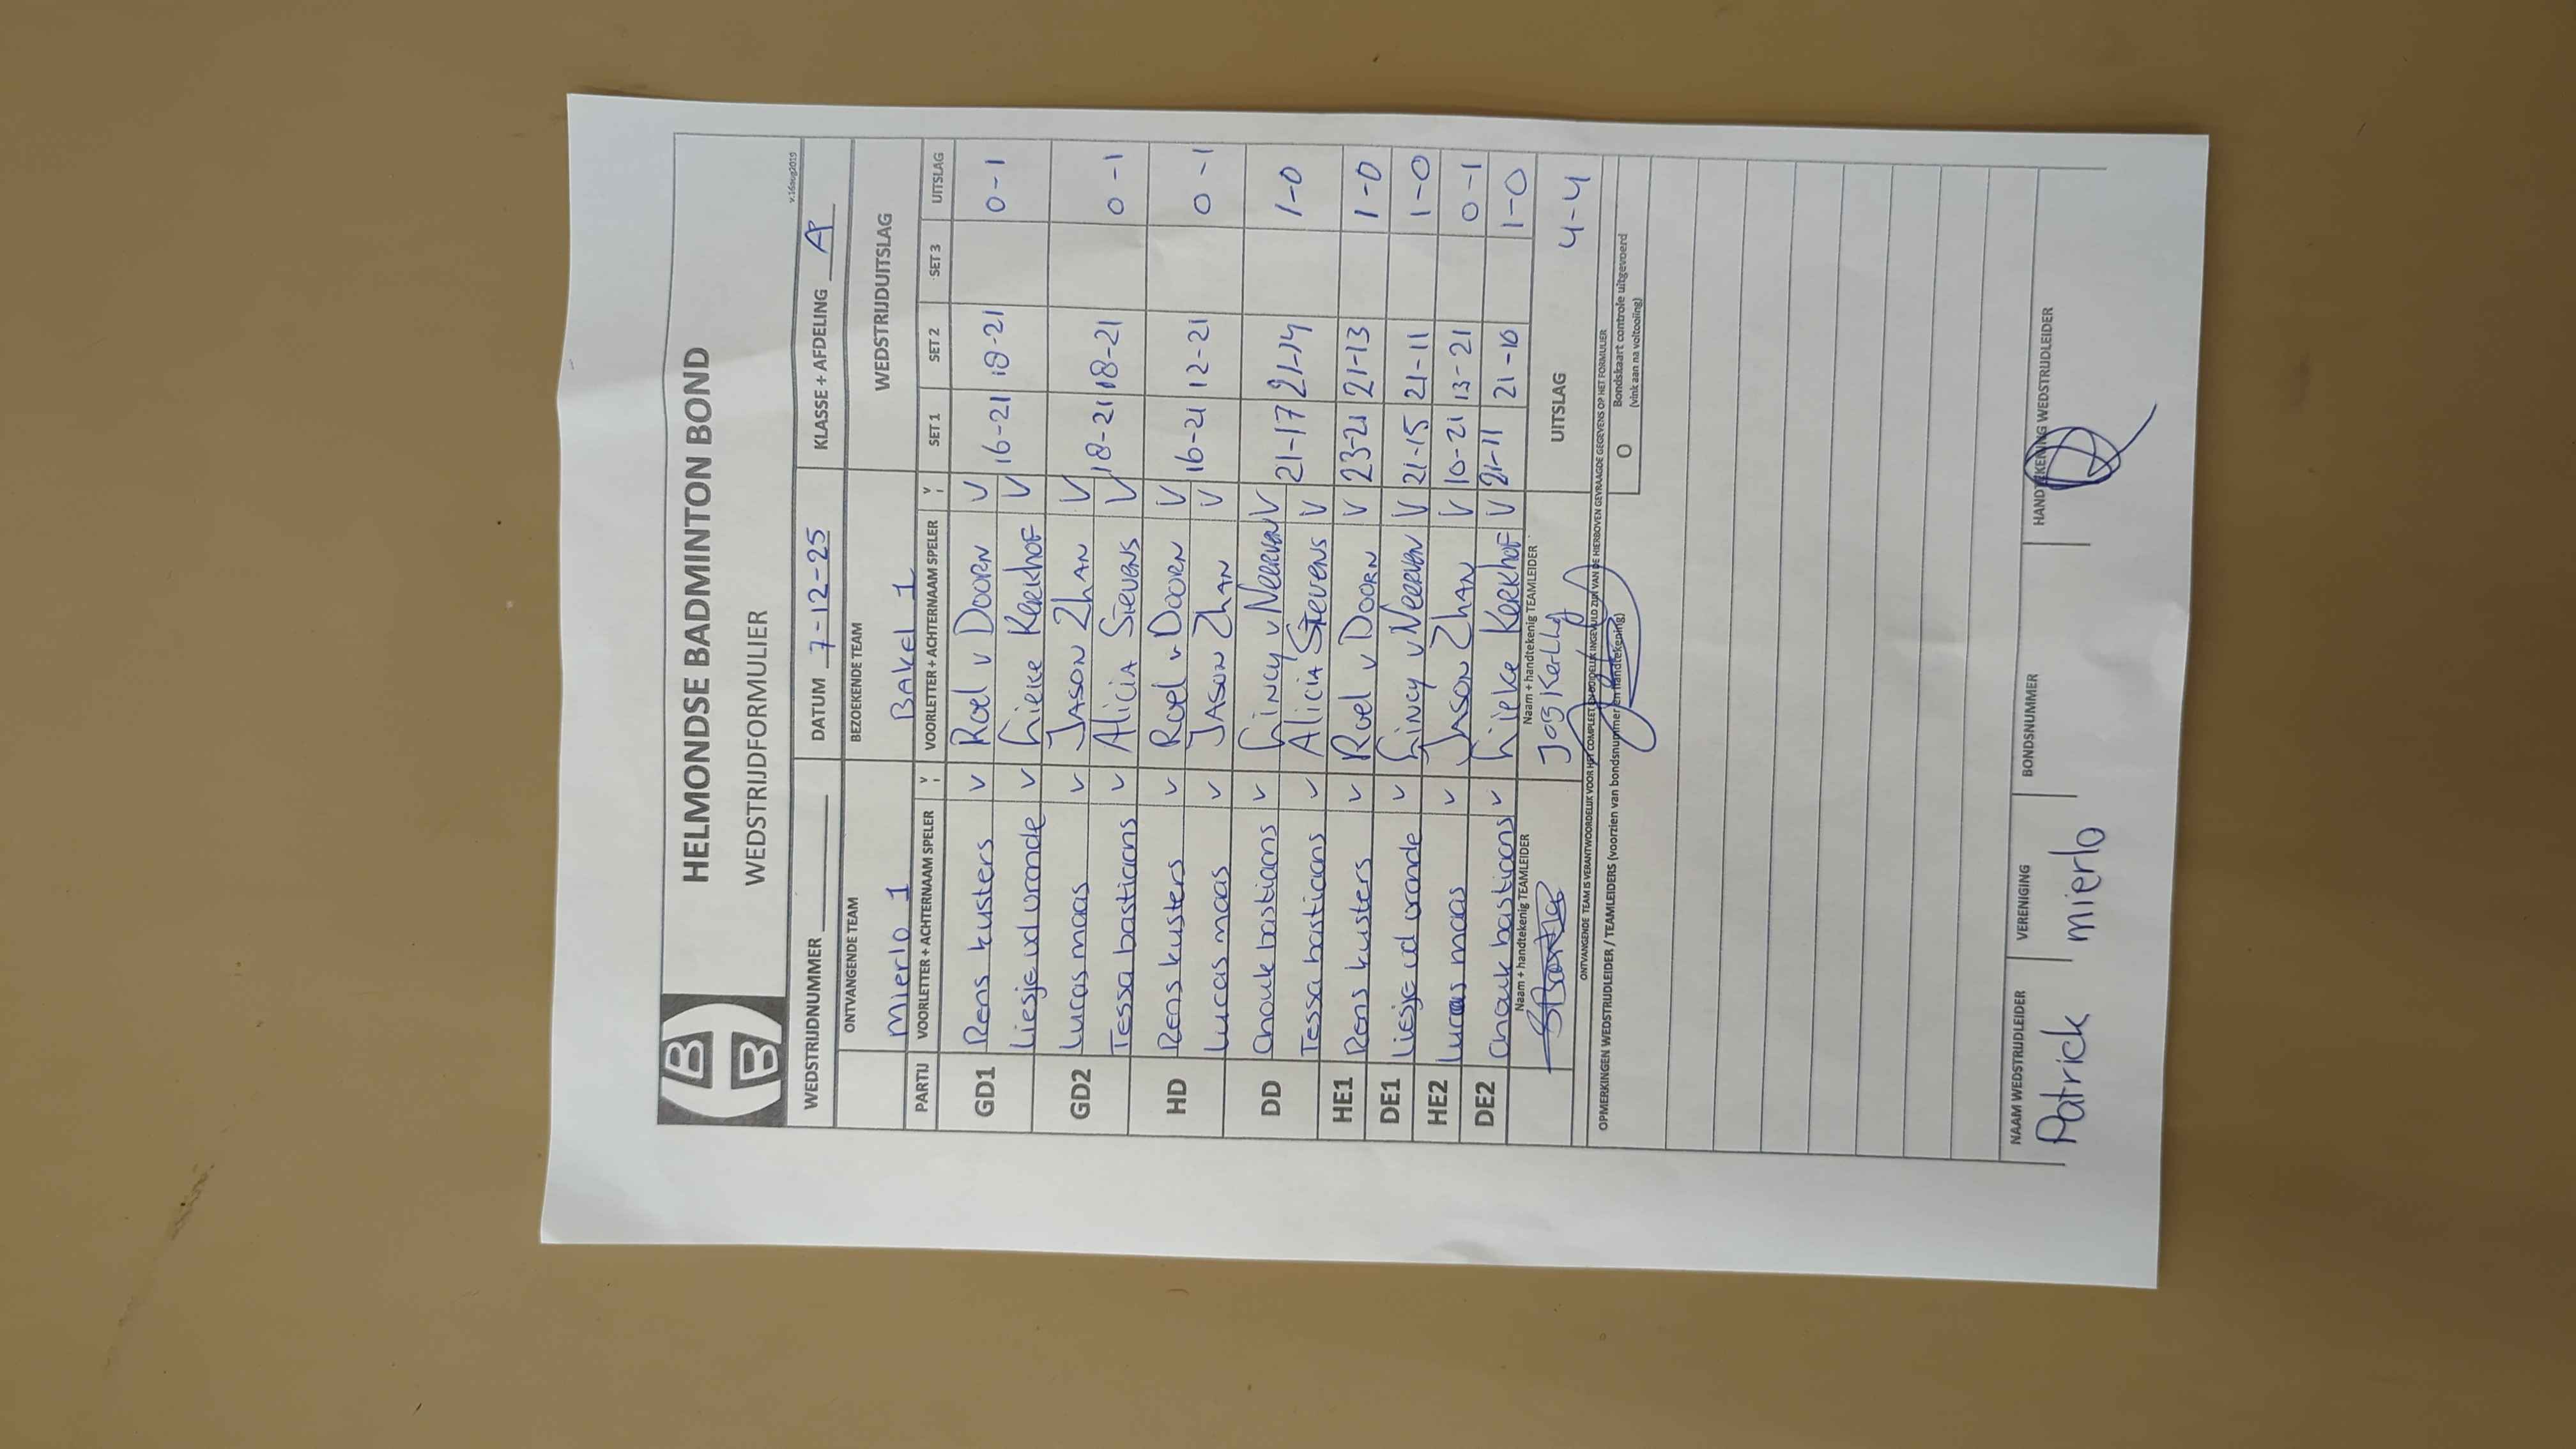 HELMONDSE BADMINTON BOND
WEDSTRIJDFORMULIER
v.16aug2019
WEDSTRIJDNUMMER DATUM 7-12-25 KLASSE + AFDELING A
ONTVANGENDE TEAM BEZOEKENDE TEAM WEDSTRIJDUITSLAG
Mierlo 1 Bakel 1
PARTIJ VOORLETTER + ACHTERNAAM SPELER V VOORLETTER + ACHTERNAAM SPELER V SET 1 SET 2 SET 3 UITSLAG
GD1 Rens kusters V Roel v Doorn V 16-21 18-21 0-1
Liesje vd vrande V Lieke Kerkhof V
GD2 Lucas maas V Jason Zhan V 18-21 18-21 0-1
Tessa bastiaans V Alicia Sievens V
HD Rens kusters V Roel v Doorn V 16-21 12-21 0-1
Lucas maas V Jason Zhan V
DD Anouk bastiaans V Lincy v Neerven V 21-17 21-14 1-0
Tessa bastiaans V Alicia Sievens V
HE1 Rens kusters V Roel v Doorn V 23-21 21-13 1-0
DE1 Liesje vd vrande V Lincy v Neerven V 21-15 21-11 1-0
HE2 Lucas maas V Jason Zhan V 10-21 13-21 0-1
DE2 Anouk bastiaans V Lieke Kerkhof V 21-11 21-10 1-0
Naam + handtekenig TEAMLEIDER Naam + handtekenig TEAMLEIDER UITSLAG 4-4
ONTVANGENDE TEAM IS VERANTWOORDELIJK VOOR HET COMPLEET EN DUIDELIJK INGEVULD ZIJN VAN DE HIERBOVEN GEVRAAGDE GEGEVENS OP HET FORMULIER
OPMERKINGEN WEDSTRIJDLEIDER / TEAMLEIDERS (voorzien van bondsnummer en handtekening)
O Bondskaart controle uitgevoerd
(vink aan na voltooiing)
NAAM WEDSTRIJDLEIDER VERENIGING BONDSNUMMER HANDTEKENING WEDSTRIJDLEIDER
Patrick mierlo